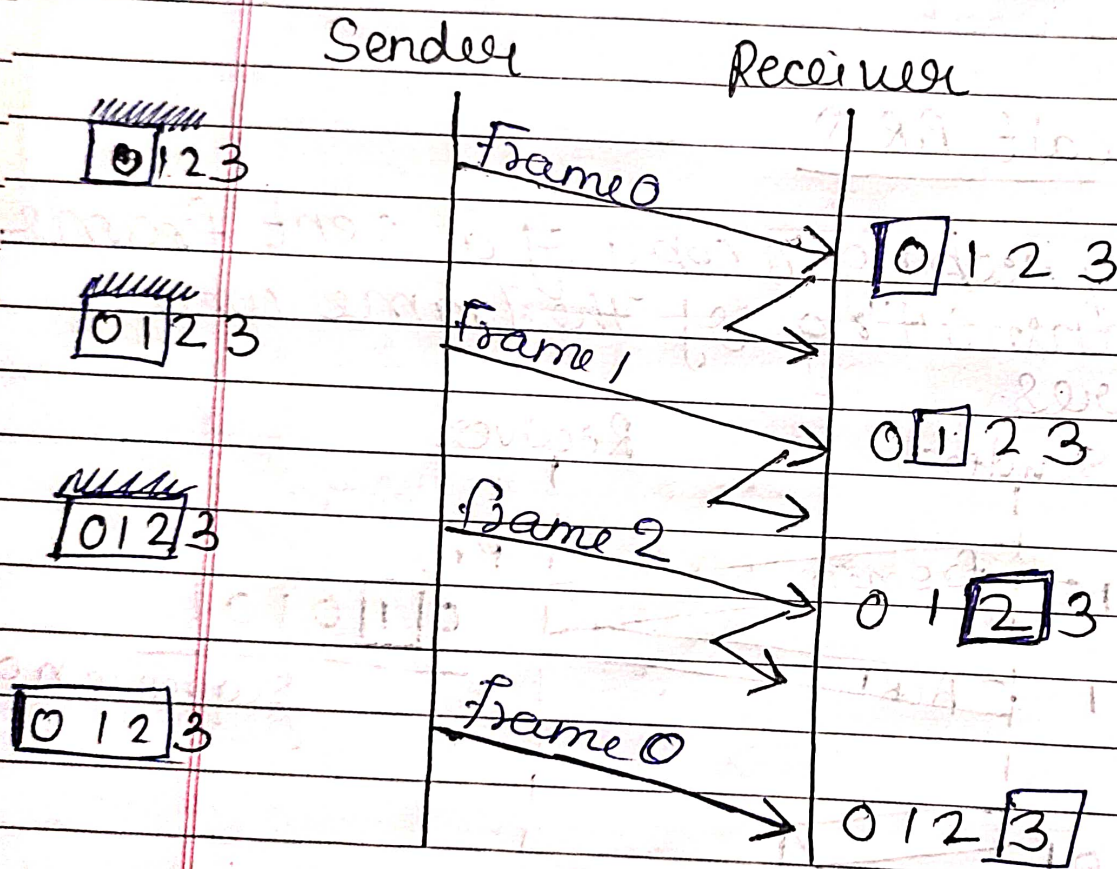 Sender Receiver
0 1 2 3
Frame 0
0 1 2 3
0 1 2 3
Frame 1
0 1 2 3
0 1 2 3
frame 2
0 1 2 3
0 1 2 3
frame 0
0 1 2 3